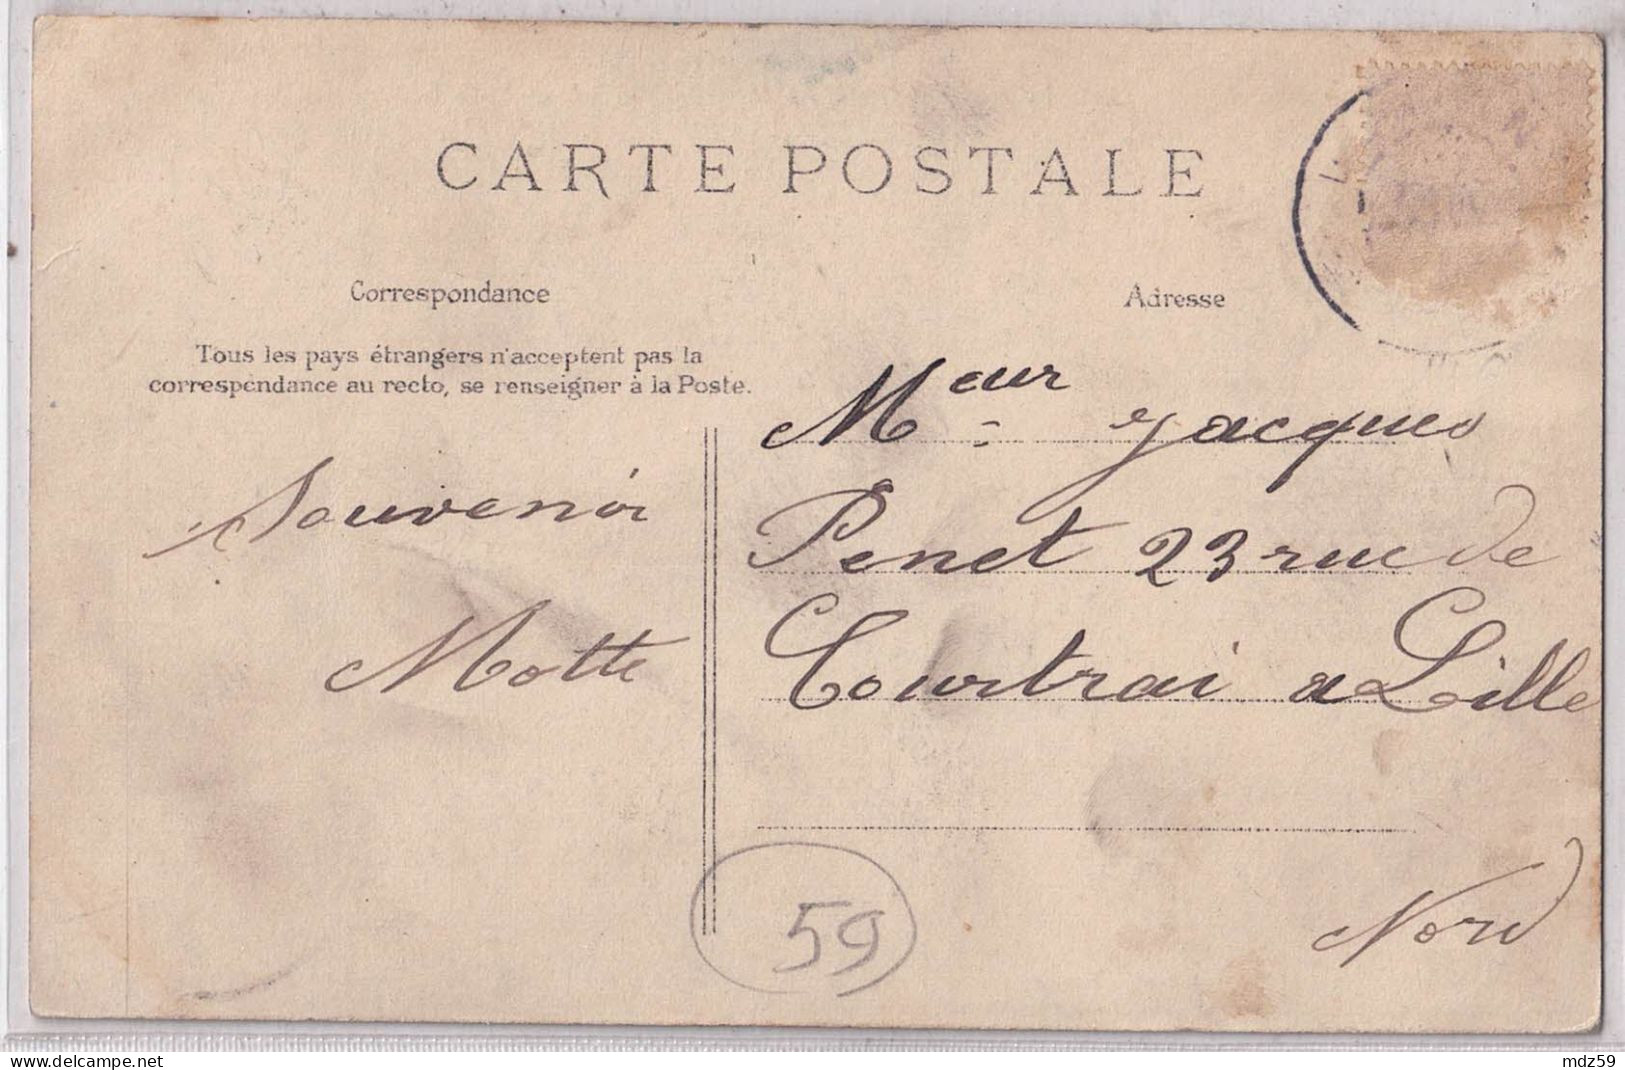 CARTE POSTALE
Correspondance
Tous les pays étrangers n'acceptent pas la
correspondance au recto, se renseigner à la Poste.
Souvenir
Motte
Adresse
Meur Jacques
Penet 23 rue de
Courtrai a Lille
Nord
59
delcampe.net
mdz59